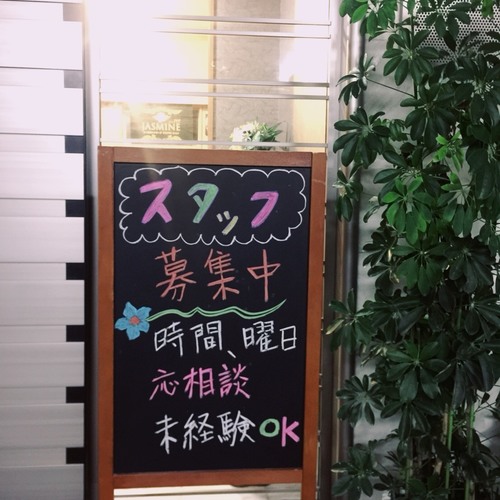 JASMINE
スタッフ
募集中
時間、曜日
応相談
未経験OK